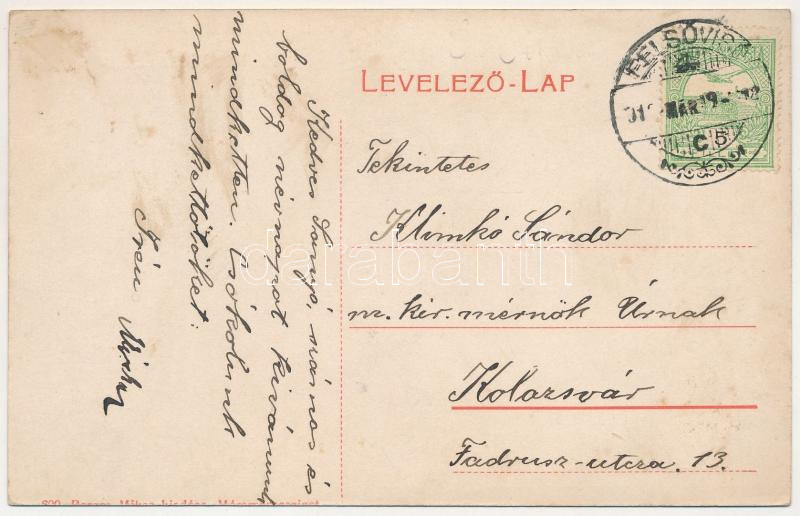 LEVELEZŐ-LAP
FELSŐVISÓ
912 MÁR 19
C 5
Tekintetes
Klimkó Sándor
m. kir. mérnök Úrnak
Kolozsvár
Fadrusz-utcza. 13.
Kedves Sanyi, számos és
boldog névnapot kivánunk
mindketten. Csókolunk
mindkettőtöket:
Irén
darabanth